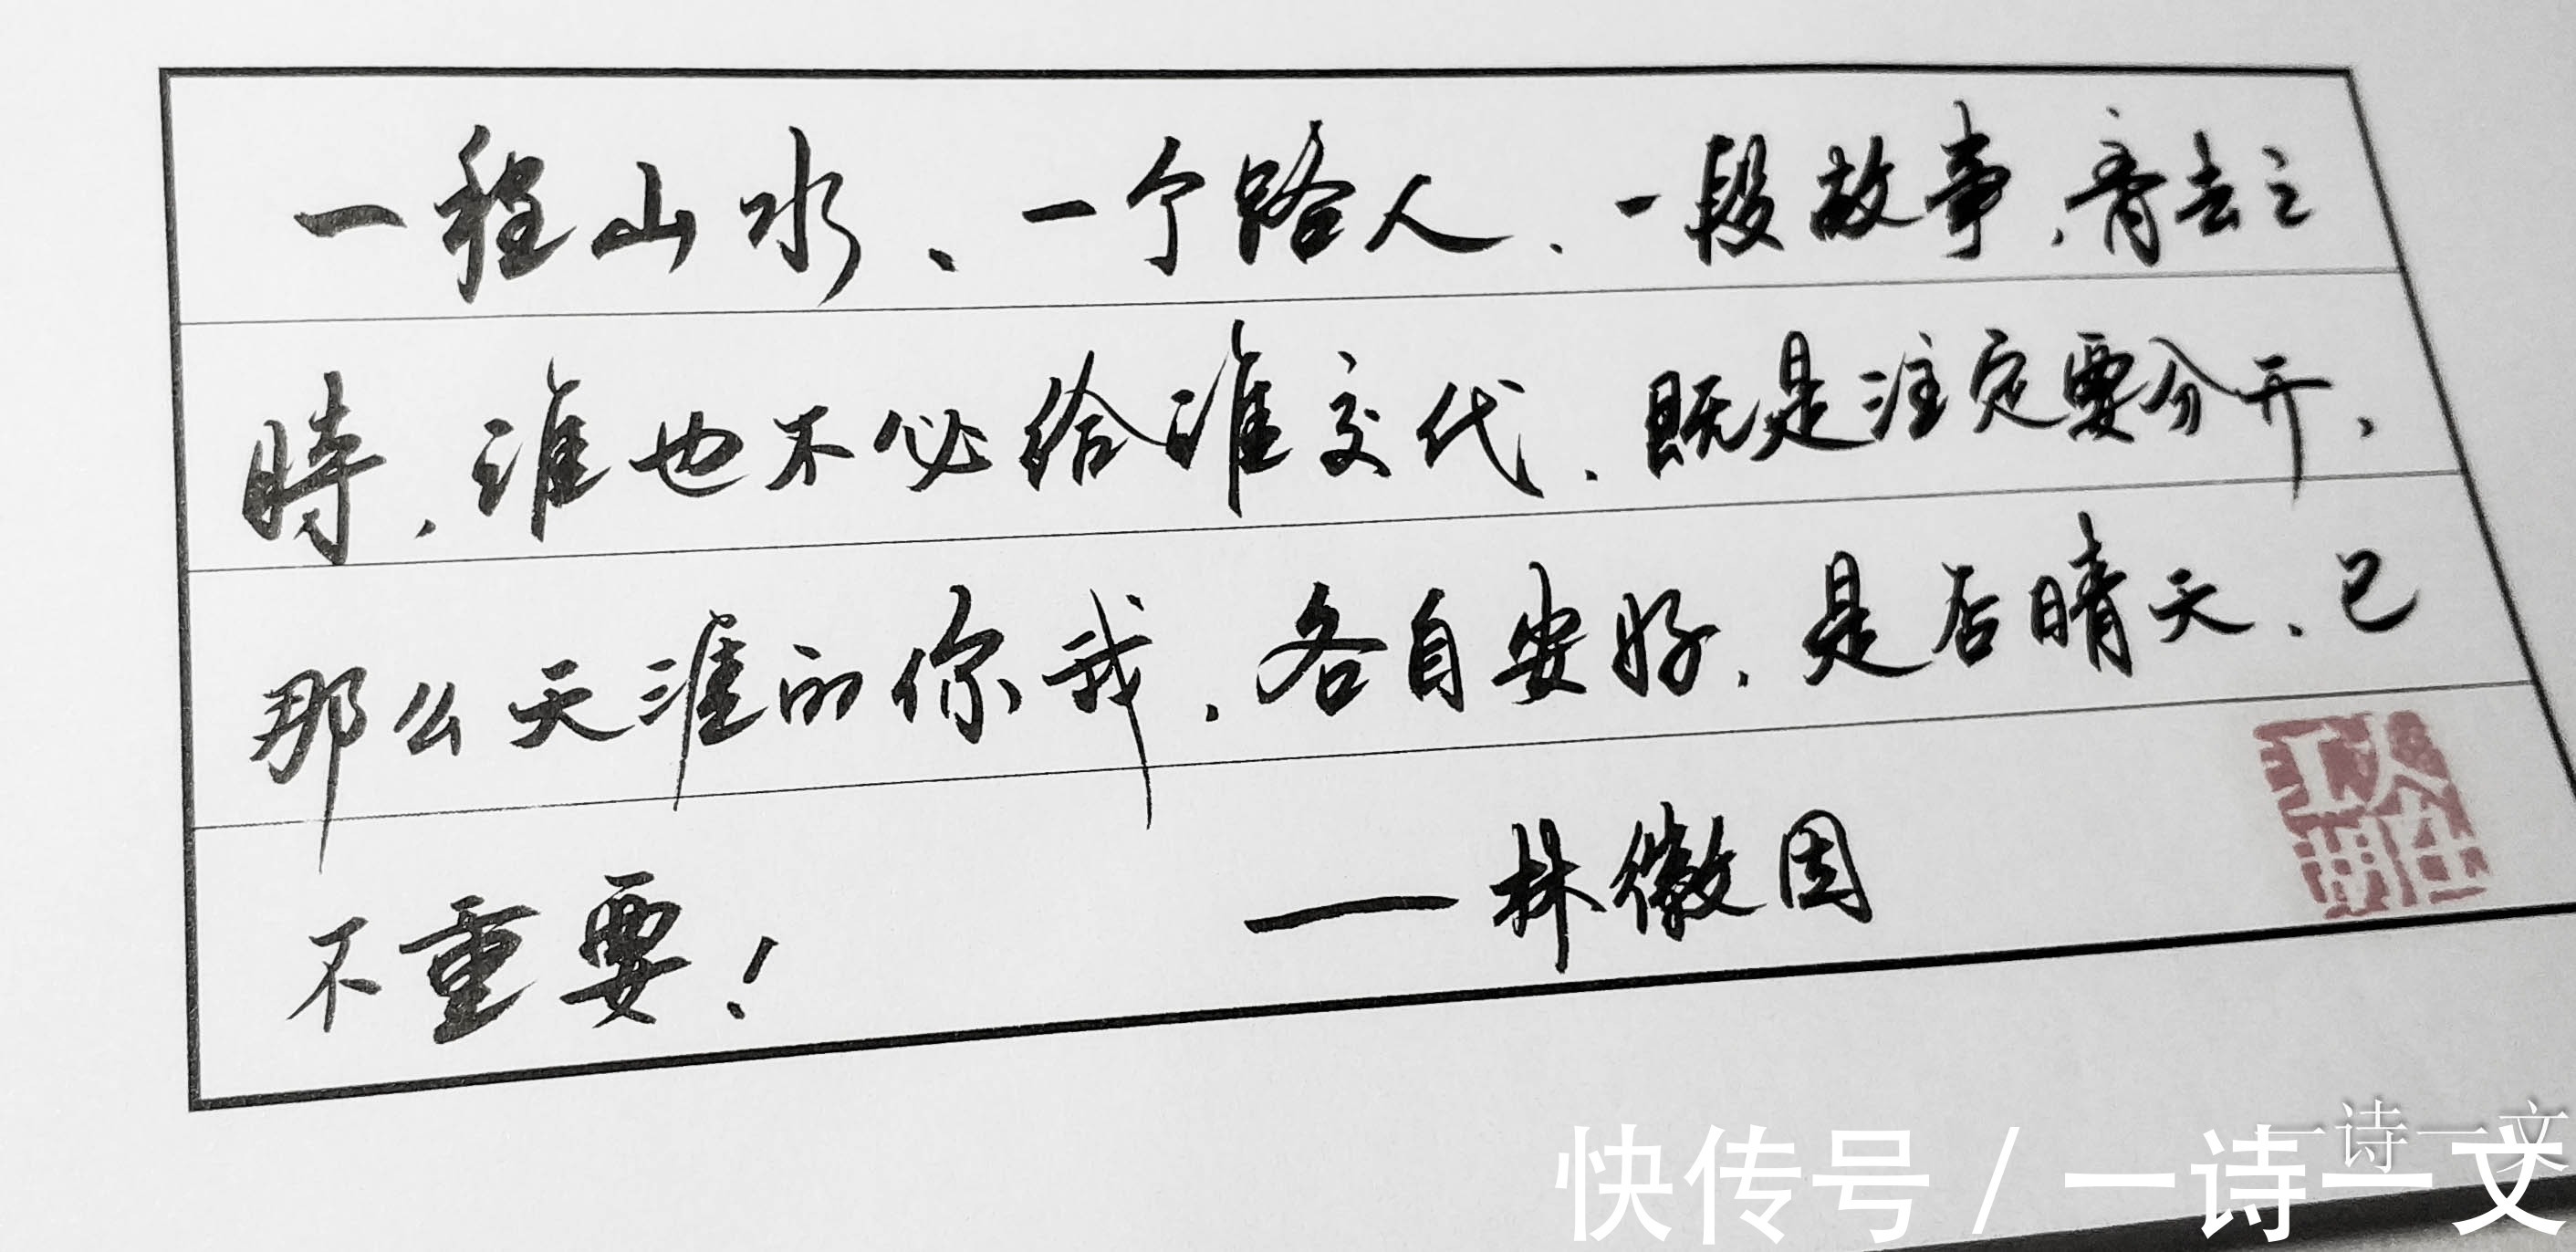 一程山水、一个路人、一段故事,离去之
時,谁也不必给谁交代,既是注定要分开,
那么天涯的你我,各自安好,是否晴天、已
不重要!
——林徽因
一诗一文
快传号/一诗一文